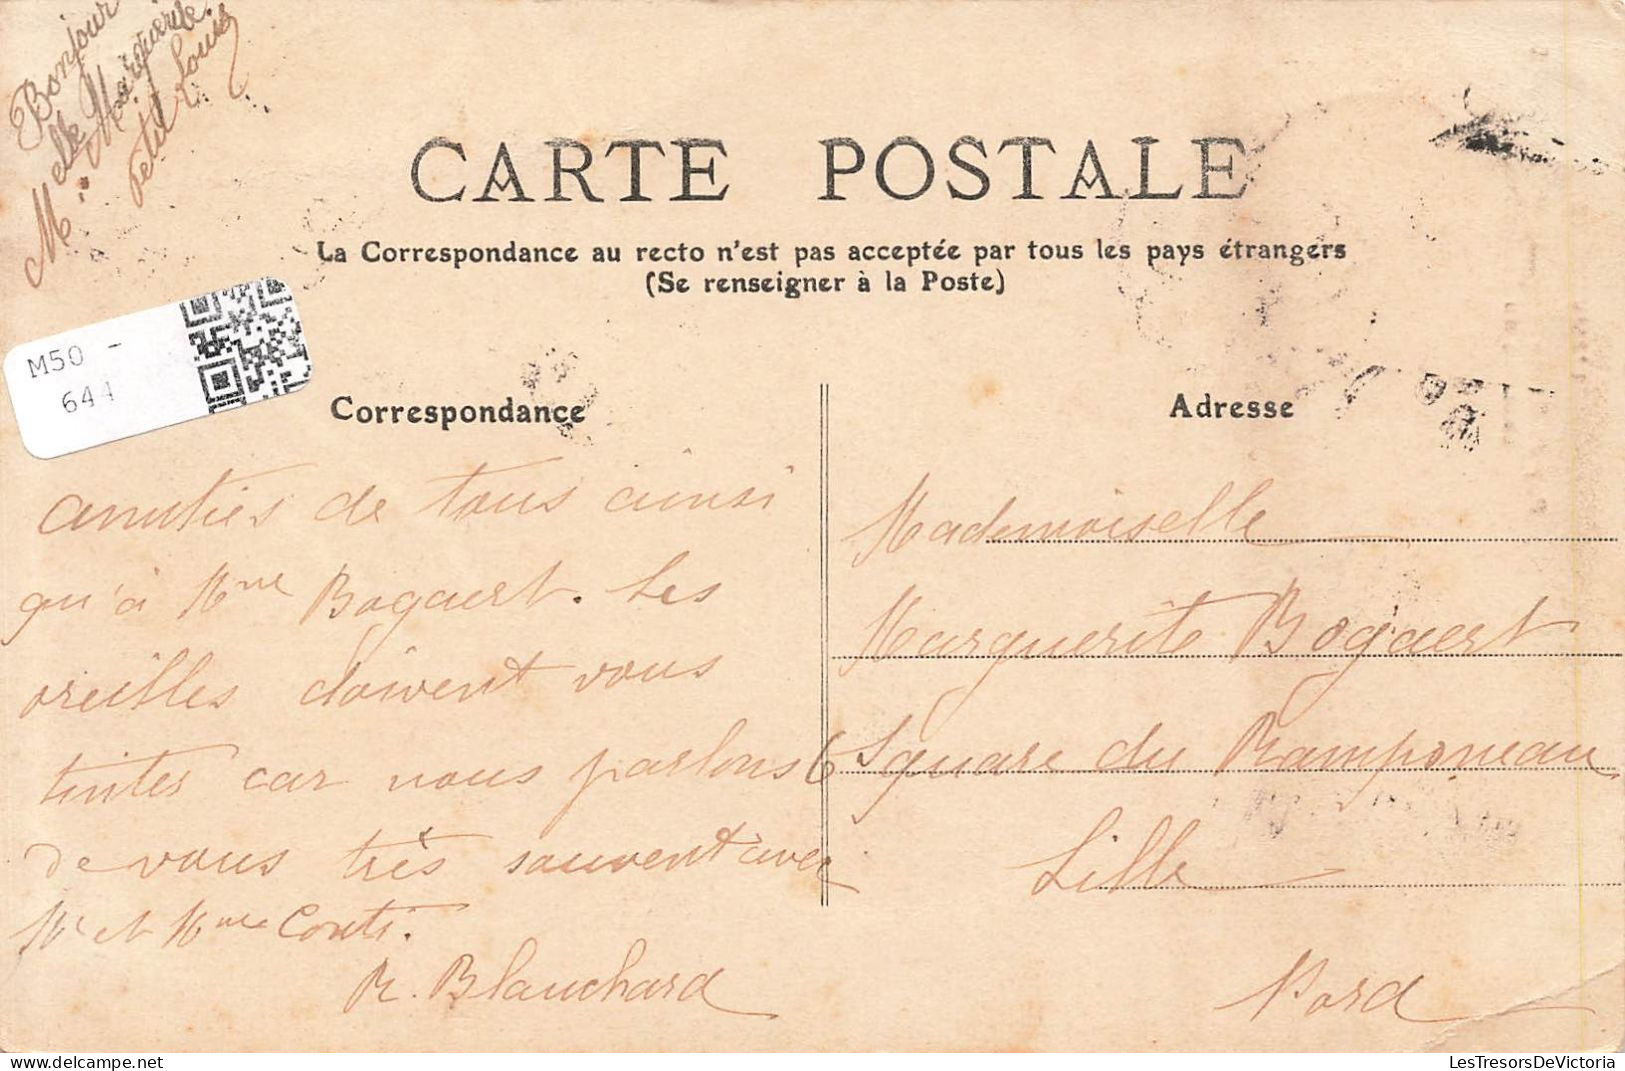 Bonjour
Melle Marguerite.
Petit Louis
CARTE POSTALE
La Correspondance au recto n'est pas acceptée par tous les pays étrangers
(Se renseigner à la Poste)
M50 -
644
Correspondance
amitiés de tous ainsi
qu'à Mme Bogaert. Les
oreilles doivent vous
tinter car nous parlons
de vous très souvent avec
Mr et Mme Conti.
R. Blanchard
Adresse
Mademoiselle
Marguerite Bogaert
6 Square du Ramponeau
Lille
Nord
LesTresorsDeVictoria